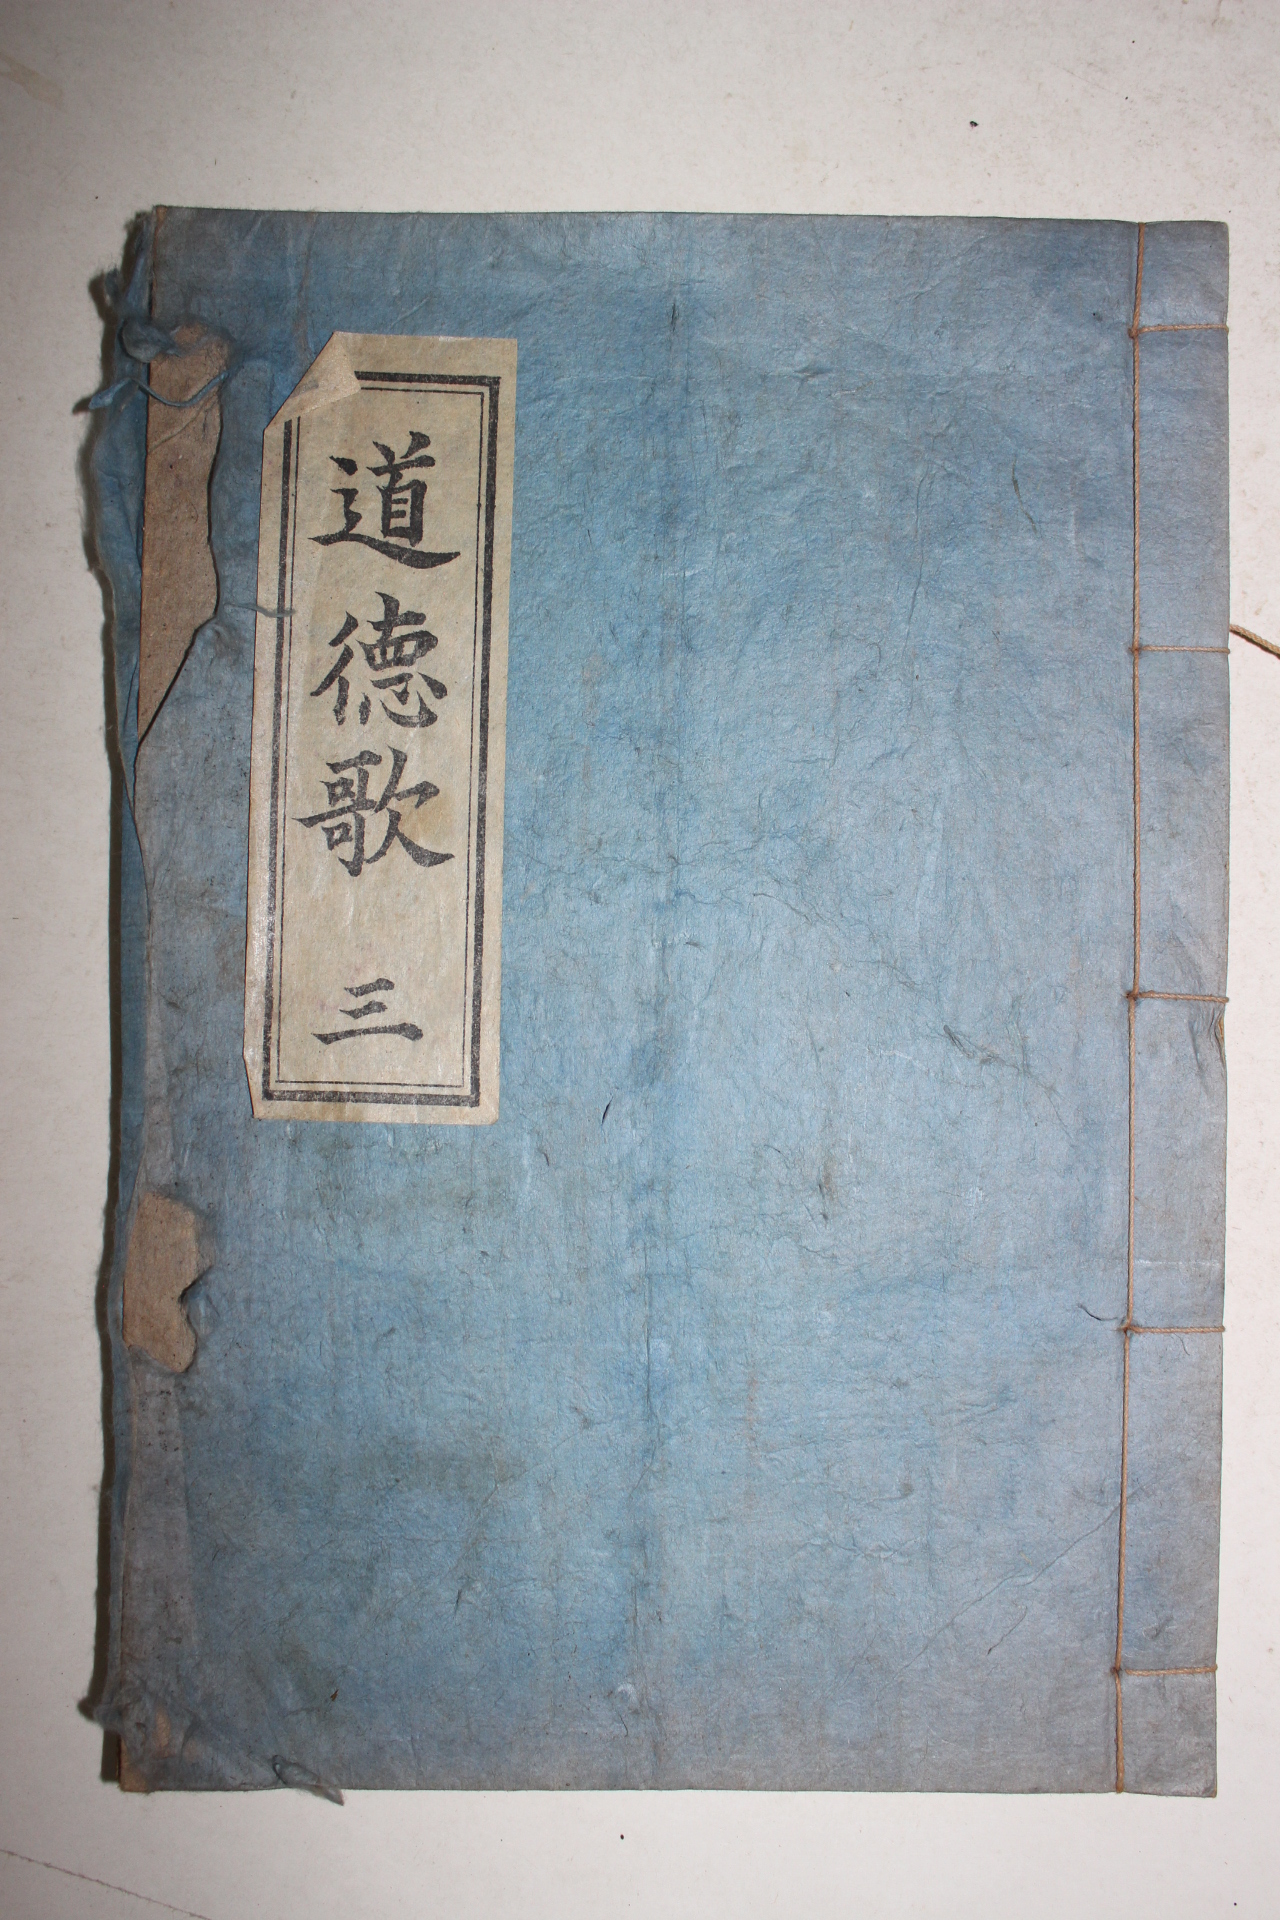 道德歌 三